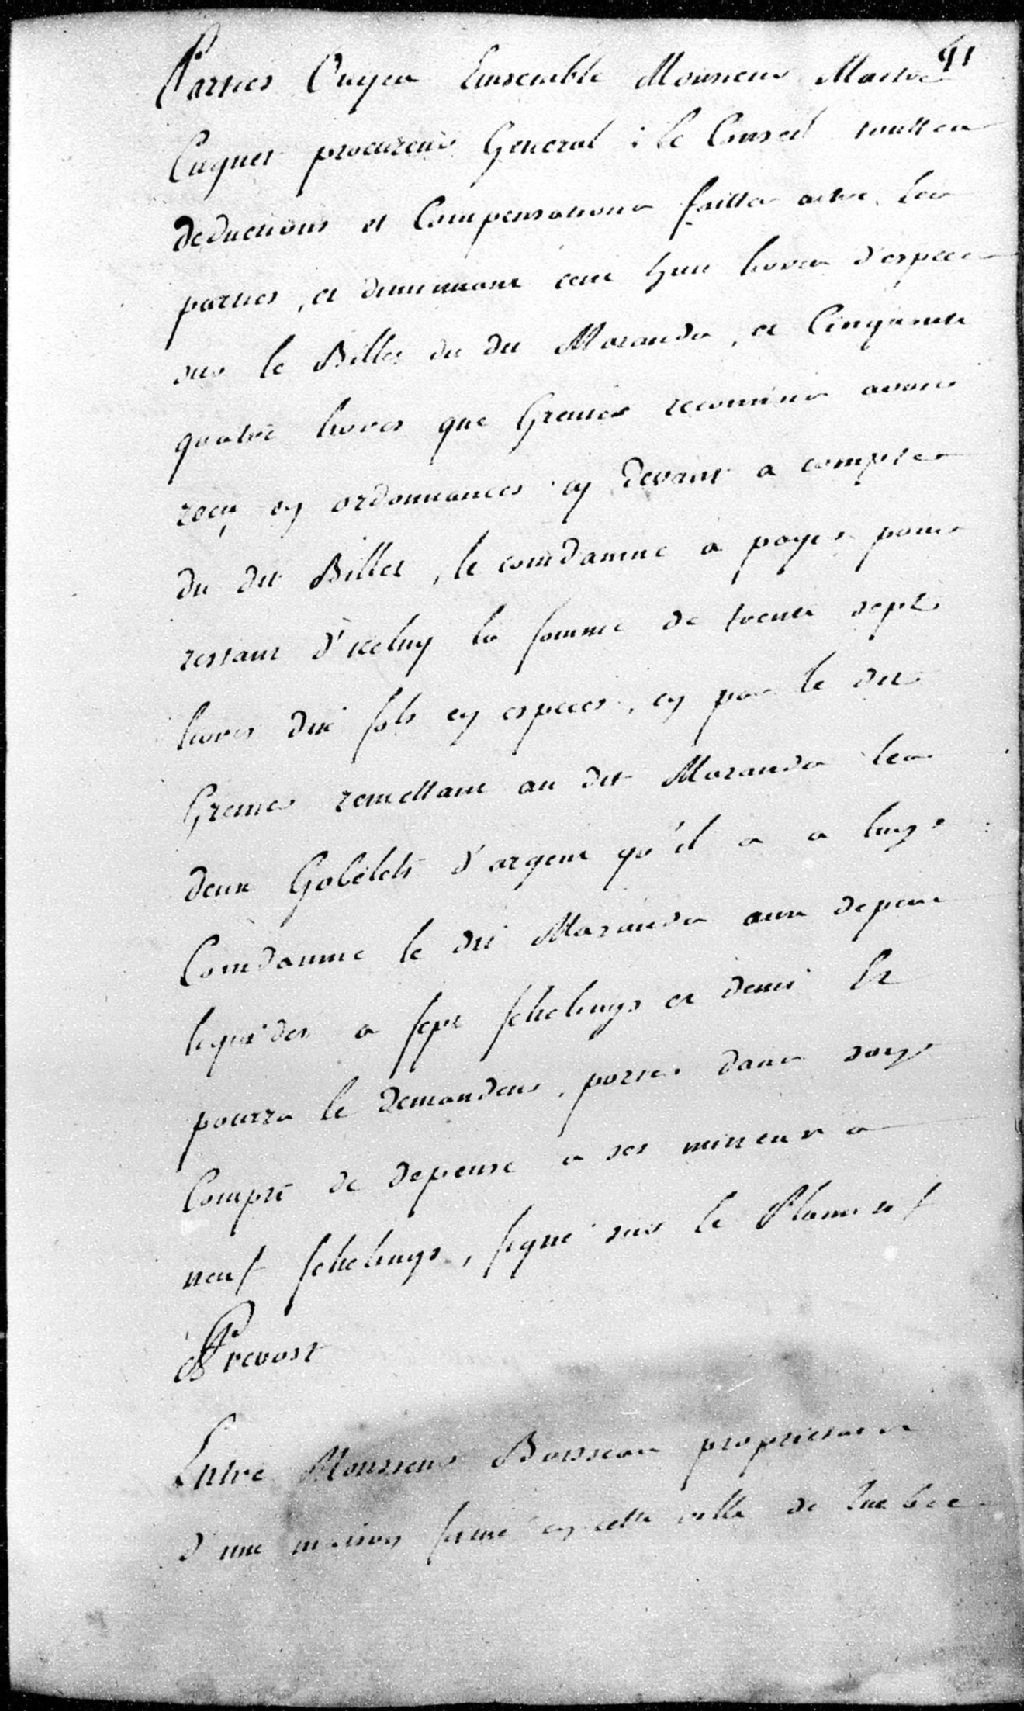 91
Parties Ouyes Ensemble Monsieur Maitre
Cugnet procureur General ; le Conseil touttes
deductions et Compensations faittes entre les
parties, et diminuant cent huit livres d'especes
sur le Billet du dit Maranda, et Cinquante
quatre livres que Grenier reconnois avoir
reçu en ordonnances cy devant a compte
du dit Billet, le condamne a payer pour
restant d'iceluy la somme de trente sept
livres dix sols en especes, en par le dit
Grenier remettant au dit Maranda les
deux Gobelets d'argent qu'il a a luy
Condamne le dit Maranda aux depens
liquidés a sept schelings et demi Et
pourra le demandeur, porter dans son
Compte de depense a ses mineurs a
neuf schelings, signé sur le Plumitif
Prevost
Entre Monsieur Boisseau proprietaire
d'une maison scituée en cette ville de Quebec